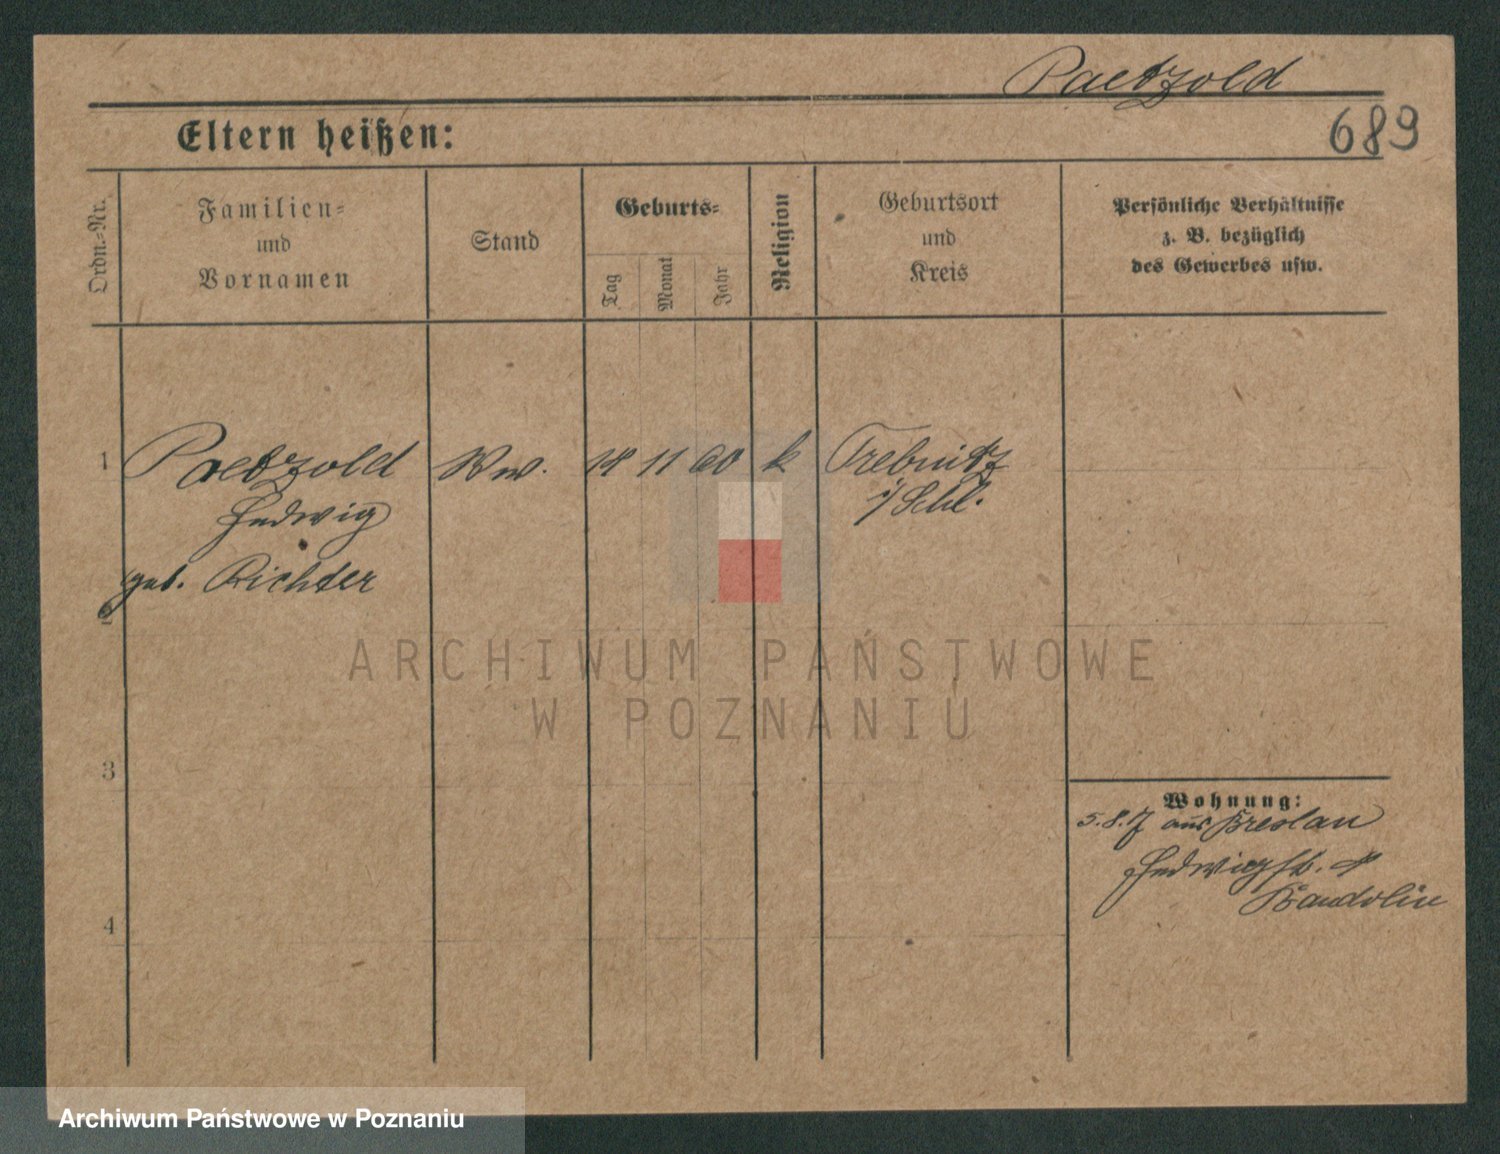 Paetzold
689
Eltern heißen:
Ordn.-Nr.
Familien-
und
Vornamen
Stand
Geburts-
Tag
Monat
Jahr
Religion
Geburtsort
und
Kreis
Persönliche Verhältnisse
z. B. bezüglich
des Gewerbes usw.
1 Paetzold Ww. 14 11 60 k Trebnitz
Hedwig i/Schl.
geb. Richter
2
3
4
Wohnung:
5.8.7 aus Breslau
Hedwigstr.
ARCHIWUM PAŃSTWOWE
W POZNANIU
Archiwum Państwowe w Poznaniu